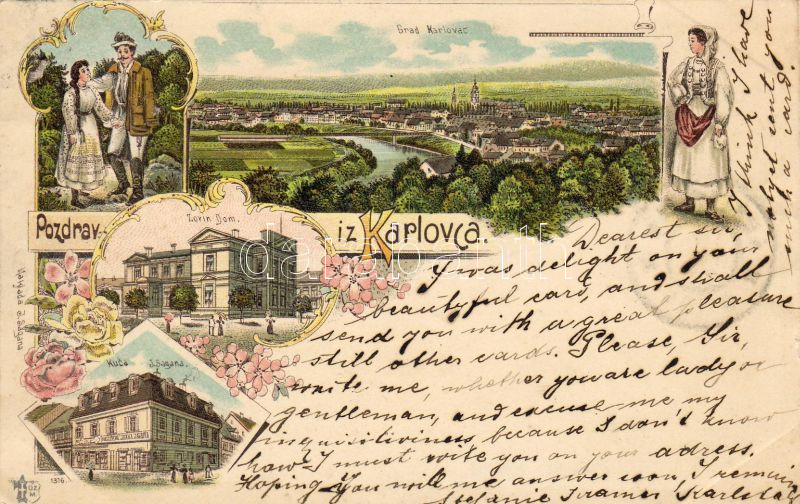 Grad Karlovac
Pozdrav iz Karlovca.
Zorin Dom.
Kuća J. Šagana.
1376
Dearest sir,
I was delight on your
beautyful card, and shall
send you with a great pleasure
still other cards. Please, Sir,
write me, whether you are lady or
gentleman, and excuse me my
inquisiliviness, because I don't know
how I must write you on your adress.
Hoping you will me answer soon, I remain
Stefanie
I think I have
not yet sent you
such a card.